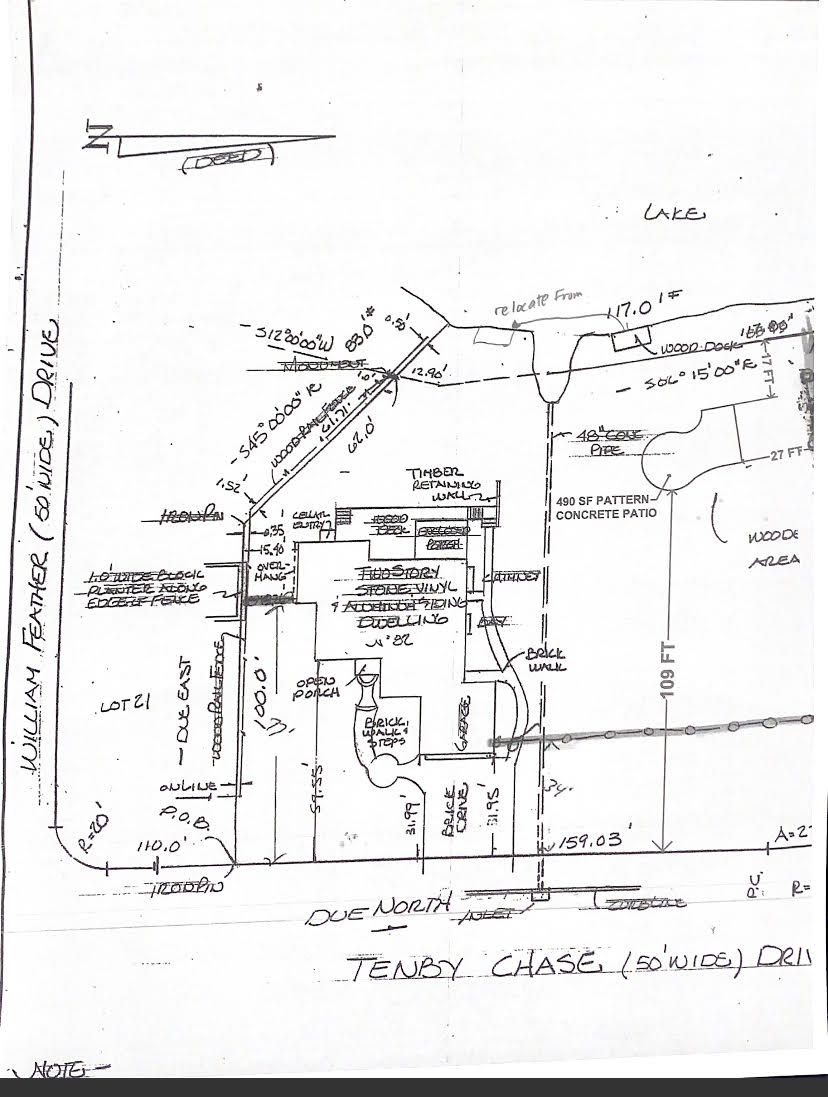 N
(DEED)
LAKE
relocate From
117.0'±
WOOD DOCK
S12°00'00"W
83.0'±
0.50'
MONUMENT
12.90'
S06°15'00"E
17 FT
S45°00'00"E
WOOD RAIL FENCE
61.71'
62.0'
1.52'
48" CONC
PIPE
27 FT
490 SF PATTERN
CONCRETE PATIO
WOODE
AREA
TIMBER
RETAINING
WALL
IRON PIN
CELLAR
ENTRY
WOOD
DECK
ENCLOSED
PORCH
0.35
15.40'
OVER-
HANG
1.0' WIDE BLOCK
PLANTER ALONG
EDGE OF FENCE
TWO STORY
STONE, VINYL
& ALUMINUM SIDING
DWELLING
Nº 82
CHIMNEY
BAY
BRICK
WALK
WILLIAM FEATHER (50' WIDE) DRIVE
LOT 21
DUE EAST
WOOD RAIL FENCE
100.0'
OPEN
PORCH
BRICK
WALK &
STEPS
GARAGE
109 FT
ONLINE
P.O.B.
59.55'
31.99'
BRICK
DRIVE
31.95'
34.
R=20'
110.0'
159.03'
A=2
IRON PIN
DUE NORTH
INLET
CURBLINE
P.C.
R=
TENBY CHASE (50' WIDE) DRI
NOTE-